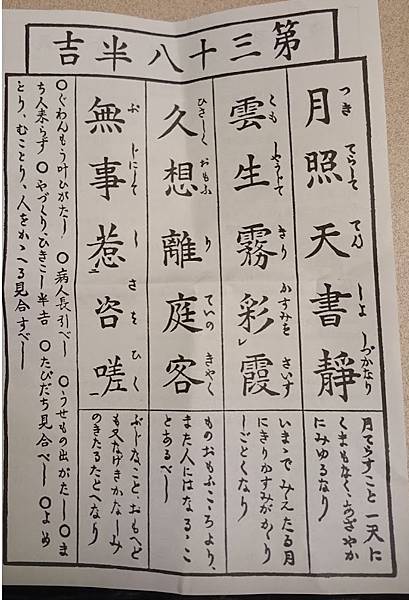 第三十八半吉
月照天書靜
つき てらして てん しよ しづかなり
月てらすこと一天に
くまもなく、あざやか
にみゆるなり
雲生霧彩霞
くも しやうじて きり かすみを さいす
いまゝでみえたる月
にきりかすみがゝり
しごとくなり
久想離庭客
ひさしく おもふ り ていの きやく
ものおもふこゝろより、
また人にはなるゝこ
とあるべし
無事惹咨嗟
ぶ じにして しさを ひく
ぶじなことゝおもへど
も又なげきかなしみ
のきたるたとへなり
〇ぐわんもう叶ひがたし 〇病人長引べし 〇うせもの出がたし 〇ま
ち人来らず 〇やづくり、ひきこし半吉 〇たびだち見合べし 〇よめ
とり、むことり、人をかゝへる見合すべし